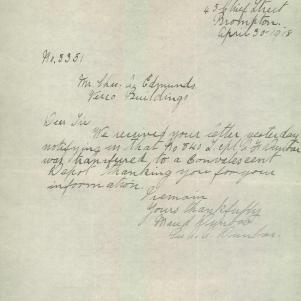 45 Chief Street
Brompton.
April 30-1918
No. 3351
Mr. Chas. Edmunds
Verco Buildings
Dear Sir
We received your letter yesterday
notifying us that No 845
was transfured to a Convelescent
Depot thanking you for your
information.
I remain
Yours thankfully
Maud Dunbar
Dunbar.